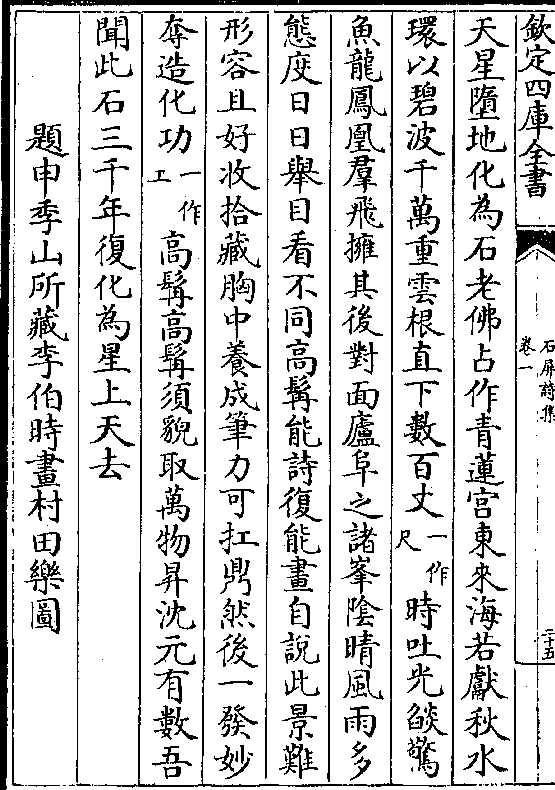 欽定四庫全書
石屏詩集
卷一
二十五
天星墮地化為石老佛占作青蓮宮東來海若獻秋水
環以碧波千萬重雲根直下數百丈一作尺時吐光燄驚
魚龍鳳凰羣飛擁其後對面廬阜之諸峯陰晴風雨多
態度日日舉目看不同高髯能詩復能畫自說此景難
形容且好收拾藏胸中養成筆力可扛鼎然後一發妙
奪造化功一作工高髯高髯須貌取萬物昇沈元有數吾
聞此石三千年復化為星上天去
題申季山所藏李伯時畫村田樂圖